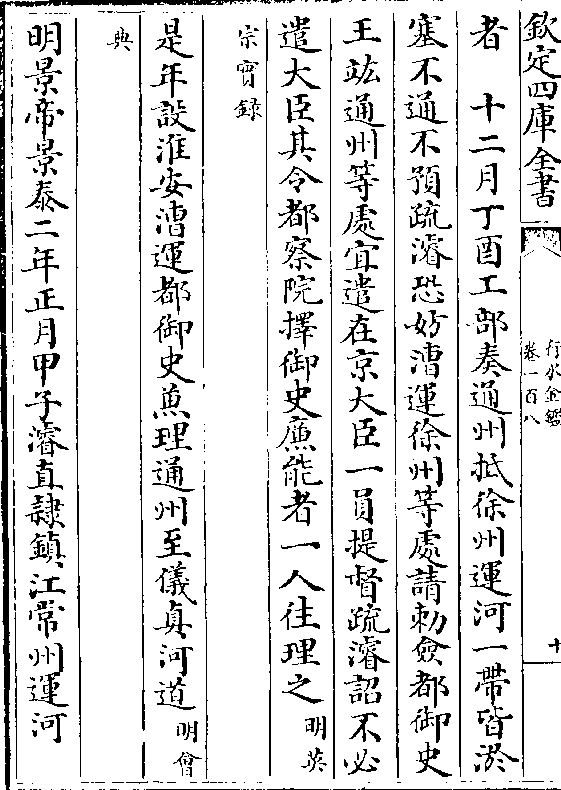 欽定四庫全書
行水金鑑
卷一百八
十
者　十二月丁酉工部奏通州抵徐州運河一帶皆淤
塞不通不預疏濬恐妨漕運徐州等處請勅僉都御史
王竑通州等處宜遣在京大臣一員提督疏濬詔不必
遣大臣其令都察院擇御史廉能者一人往理之明英
宗實錄
是年設淮安漕運都御史兼理通州至儀真河道明會
典
明景帝景泰二年正月甲子濬直隸鎮江常州運河